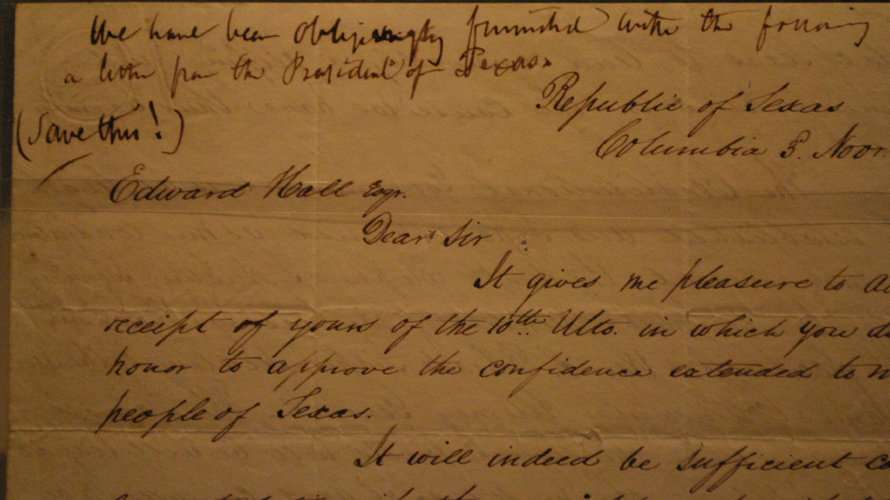 We have been obligingly furnished with the following
a letter from the President of Texas.
(Save this!)
Republic of Texas
Columbia 3. Novr.
Edward Hall Esqr.
Dear Sir
It gives me pleasure to
receipt of yours of the 10th Ulto. in which you
honor to approve the confidence extended to
people of Texas.
It will indeed be sufficient